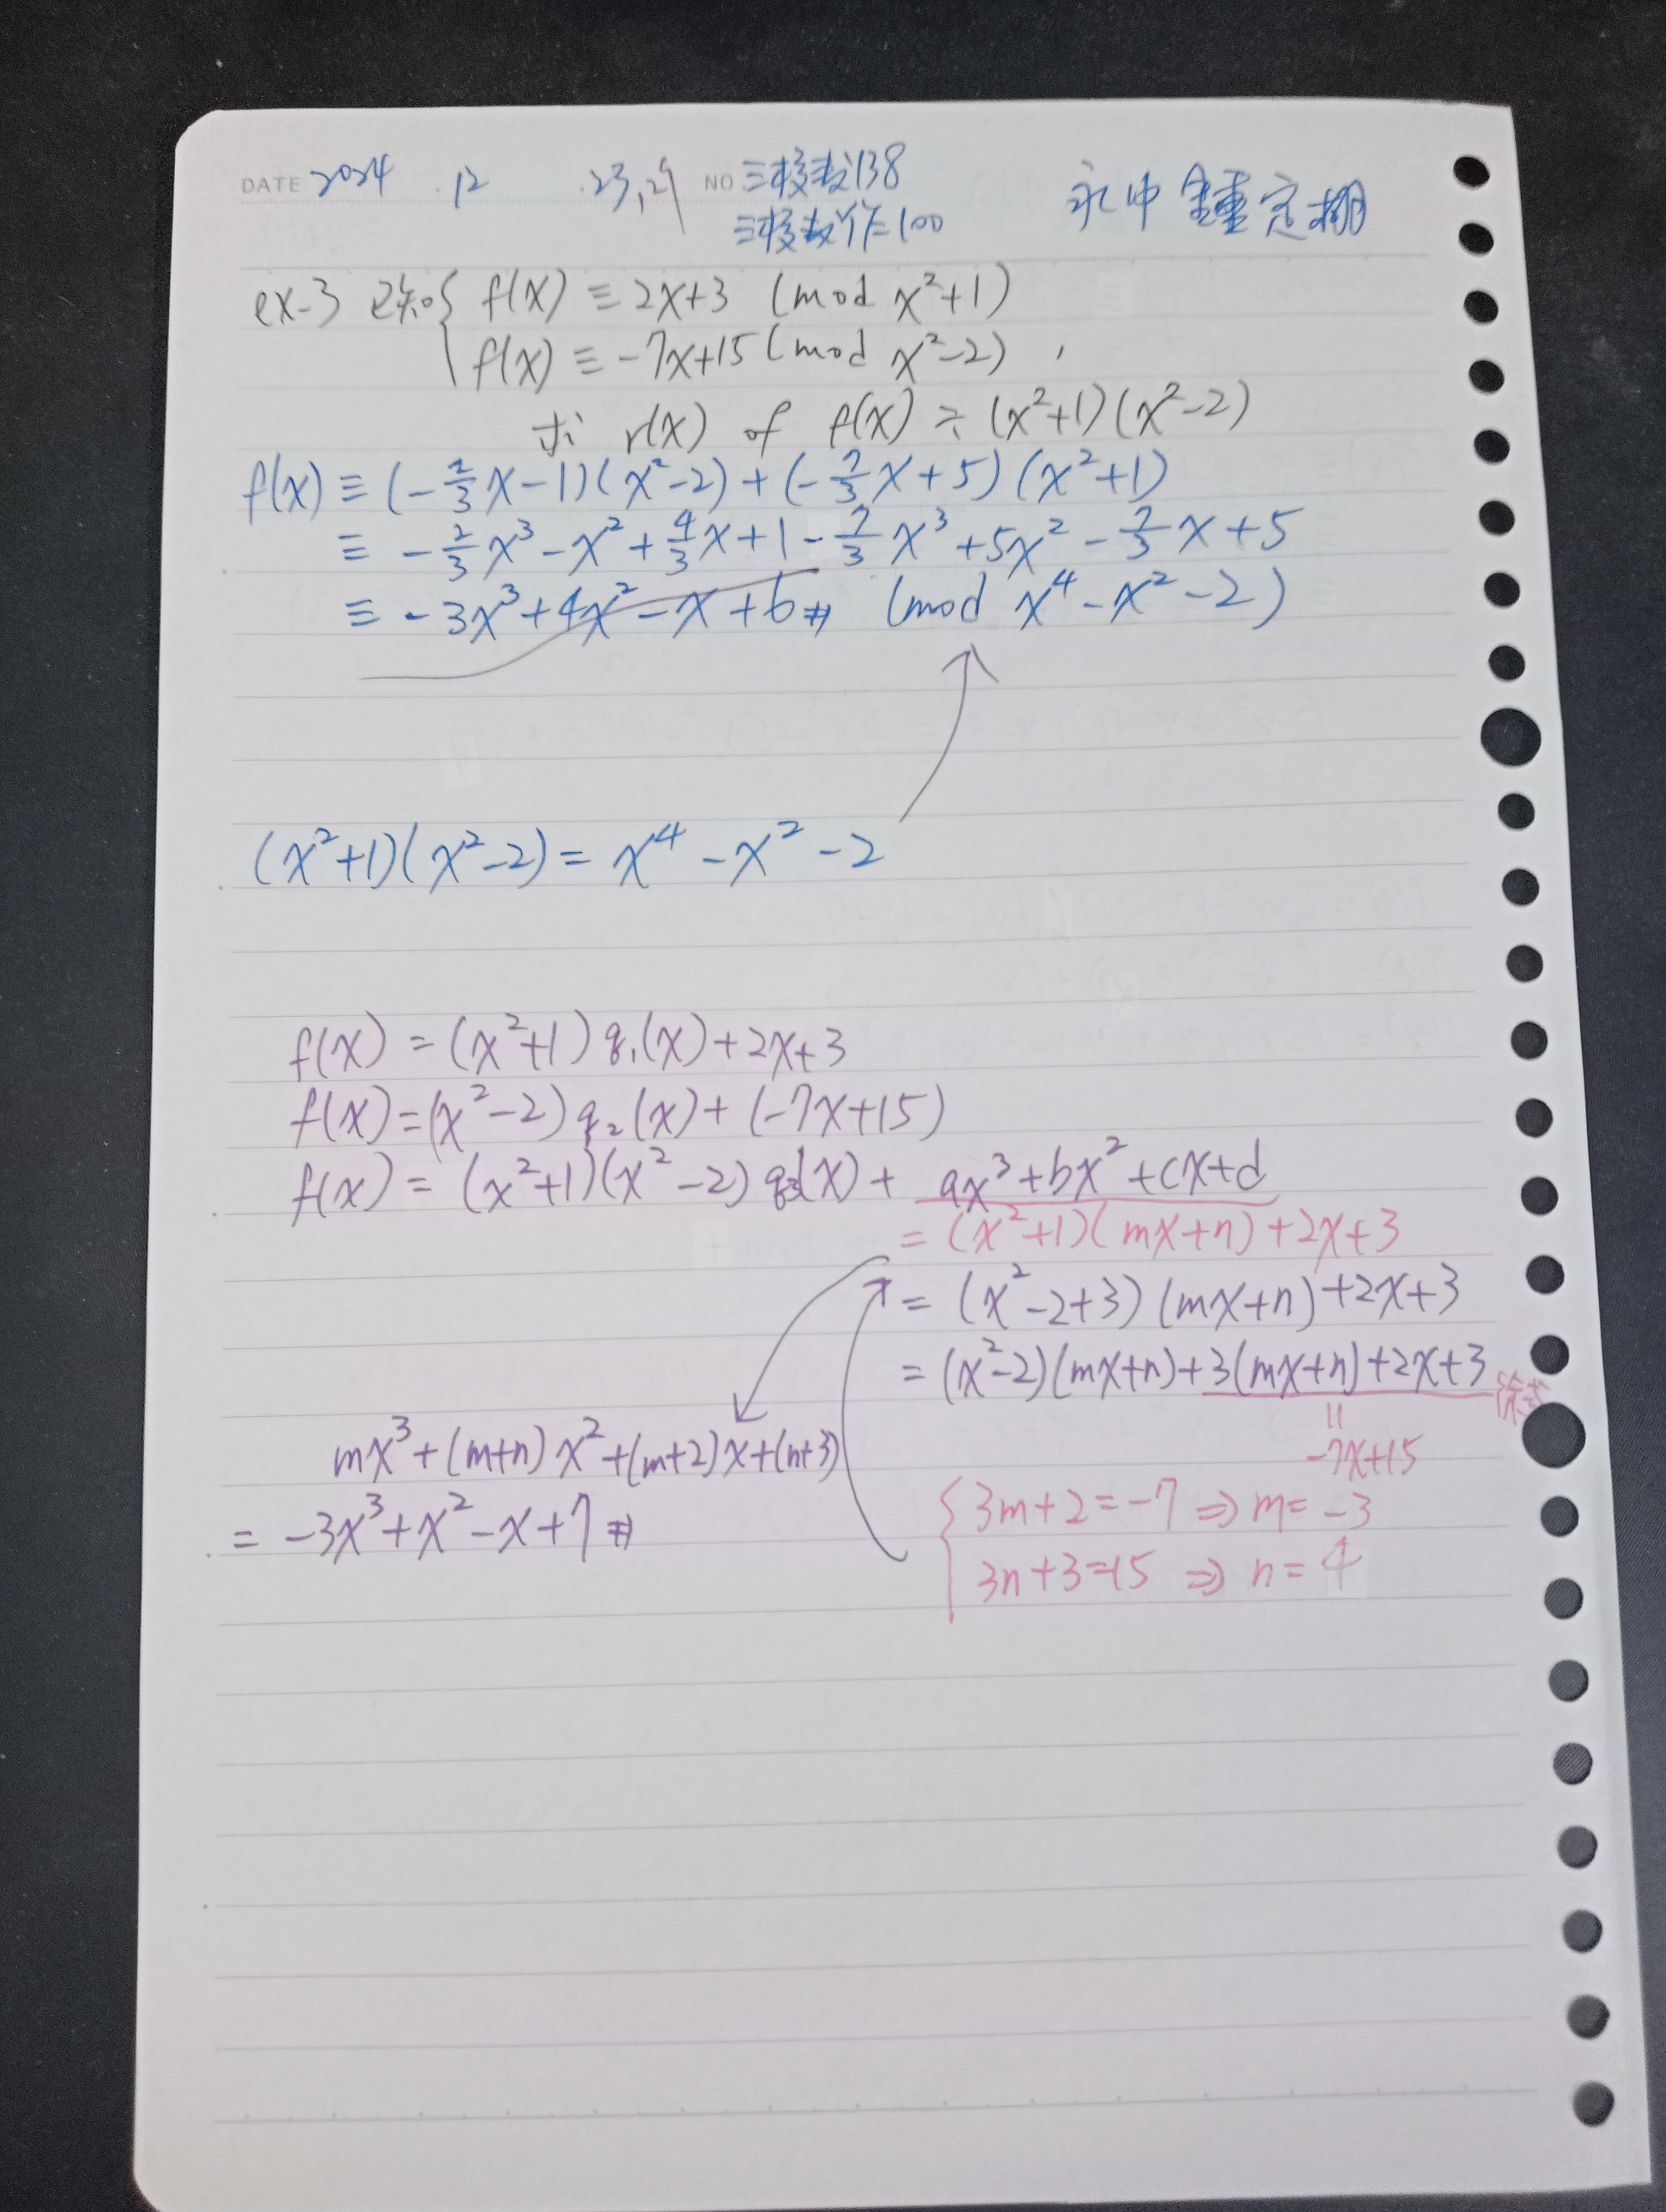 DATE 2024 .12 .23,29 NO 三核数138 永中 鍾定棚
三核数作=100
ex-3 已知{ f(x) ≡ 2x+3 (mod x²+1)
f(x) ≡ -7x+15 (mod x²-2) ,
求 r(x) of f(x) ÷ (x²+1)(x²-2)
f(x) ≡ (-2/3x-1)(x²-2)+(-7/3x+5)(x²+1)
≡ -2/3x³-x²+4/3x+1-7/3x³+5x²-7/3x+5
≡ -3x³+4x²-x+6 # (mod x⁴-x²-2)
(x²+1)(x²-2)= x⁴-x²-2
f(x) = (x²+1)q₁(x)+2x+3
f(x)=(x²-2)q₂(x)+(-7x+15)
f(x) = (x²+1)(x²-2)q₃(x)+ ax³+bx²+cx+d
= (x²+1)(mx+n)+2x+3
= (x²-2+3)(mx+n)+2x+3
= (x²-2)(mx+n)+3(mx+n)+2x+3 餘式
||
-7x+15
mx³+(m+n)x²+(m+2)x+(n+3)
= -3x³+x²-x+7 #
{ 3m+2=-7 ⇒ m=-3
3n+3=15 ⇒ n=4